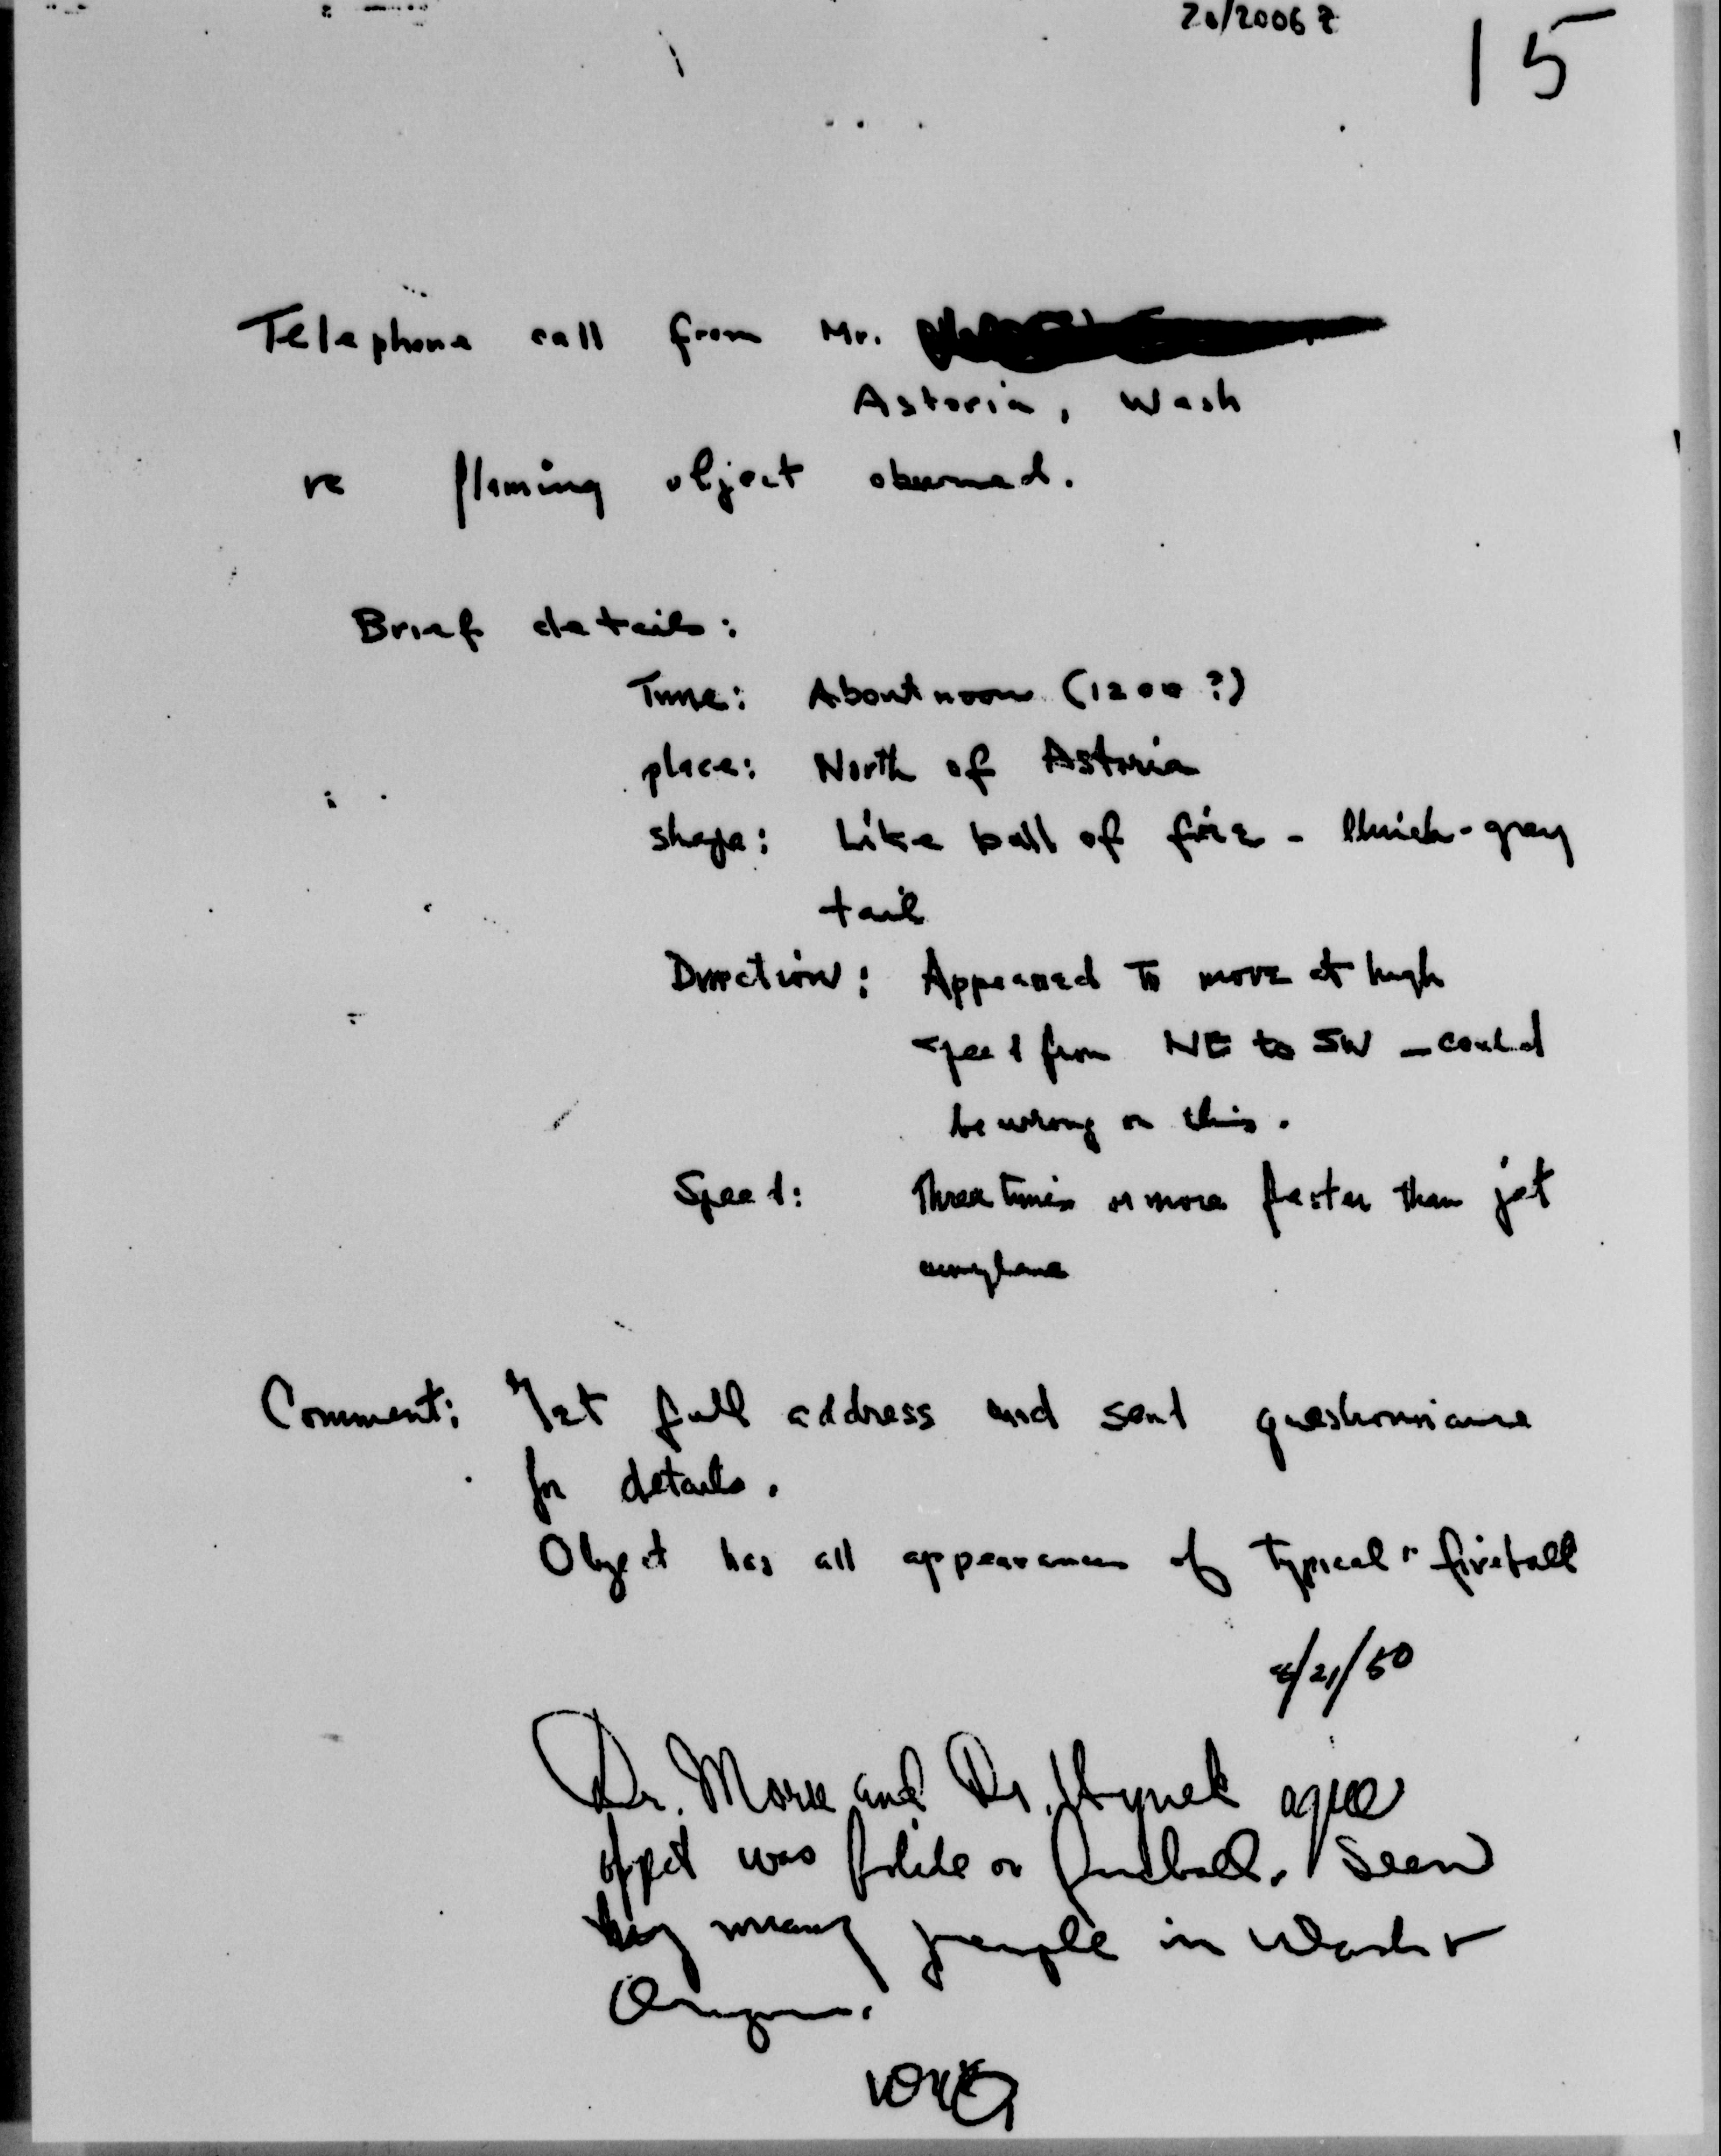 20/2006 Z
15
Telephone call from Mr.
Astoria, Wash
re flaming object observed.
Brief details:
Time: About noon (1200 ?)
place: North of Astoria
shape: Like ball of fire - bluish-gray
tail
Direction: Appeared to move at high
speed from NE to SW - could
be wrong on this.
Speed: Three times or more faster than jet
airplane
Comment: Get full address and send questionniare
for details.
Object has all appearances of typical "fireball"
/21/50
Dr. and Dr. Hynek agree
object was bolide or fireball. Seen
by many people in Wash +
Oregon.